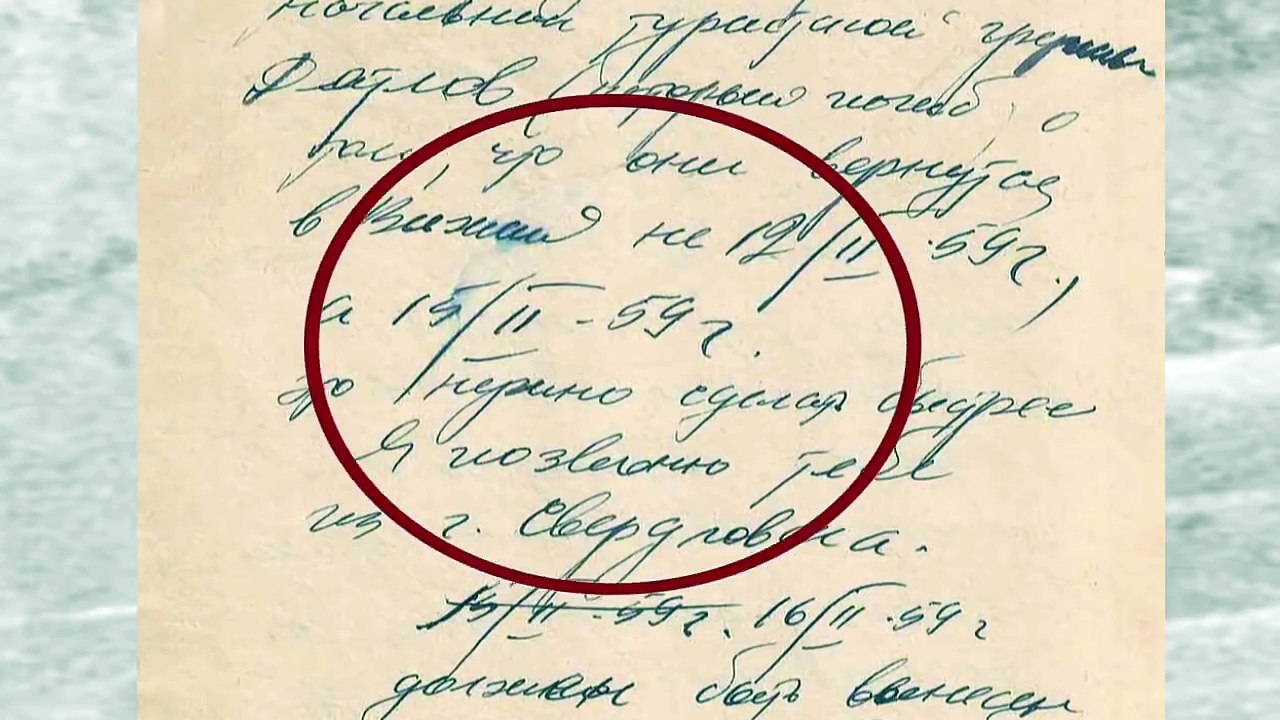 туристской группы
Дятлов (который погиб) о
том, что они вернутся
в Вижай не 12/II-59г.,
а 15/II-59г.
это нужно сделать быстрее
Я позвоню тебе
из г. Свердловска.
15/II-59г. 16/II-59г
должен быть вынесен